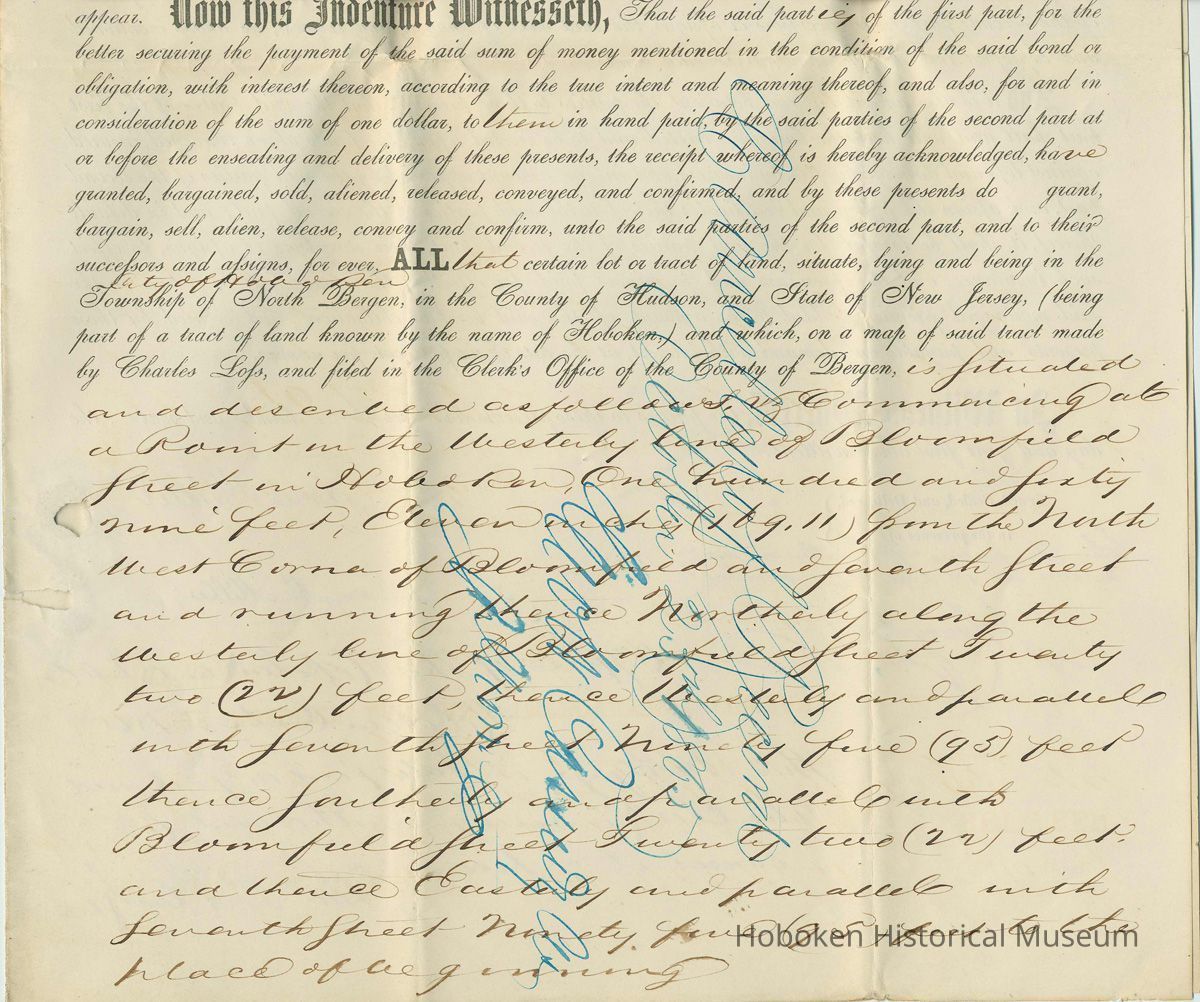 appear. Now this Indenture Witnesseth, That the said parties of the first part, for the
better securing the payment of the said sum of money mentioned in the condition of the said bond or
obligation, with interest thereon, according to the true intent and meaning thereof, and also, for and in
consideration of the sum of one dollar, to them in hand paid, by the said parties of the second part at
or before the ensealing and delivery of these presents, the receipt whereof is hereby acknowledged, have
granted, bargained, sold, aliened, released, conveyed, and confirmed, and by these presents do grant,
bargain, sell, alien, release, convey and confirm, unto the said parties of the second part, and to their
successors and assigns, for ever, ALL that certain lot or tract of land, situate, lying and being in the
City of Hoboken
Township of North Bergen, in the County of Hudson, and State of New Jersey, (being
part of a tract of land known by the name of Hoboken,) and which, on a map of said tract made
by Charles Loss, and filed in the Clerk's Office of the County of Bergen, is situated
and described as follows, Commencing at
a Point in the Westerly line of Bloomfield
Street in Hoboken, One hundred and sixty
nine feet, Eleven inches (169.11) from the North
West Corner of Bloomfield and Seventh Street
and running thence Northerly along the
Westerly line of Bloomfield Street Twenty
two (22) feet, thence Westerly and parallel
with Seventh Street Ninety five (95) feet
thence Southerly and parallel with
Bloomfield Street Twenty two (22) feet.
and thence Easterly and parallel with
Seventh Street Ninety five (95) feet to the
place of beginning
Hoboken Historical Museum